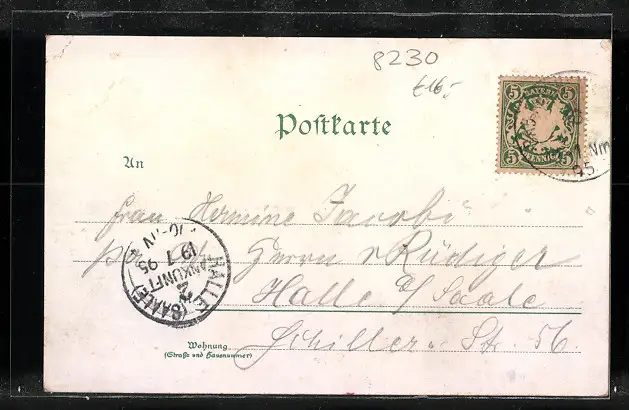 8230
€16,-
Postkarte
5 BAYERN 5
5 PFENNIG 5
Nm
95
An
Frau Hermine Jacobi
Herrn v Rüdiger
Halle a/ Saale
Schiller-Str. 56.
HALLE (SAALE)
ANKUNFT
19 7 95
2
Wohnung
(Straße und Hausnummer)